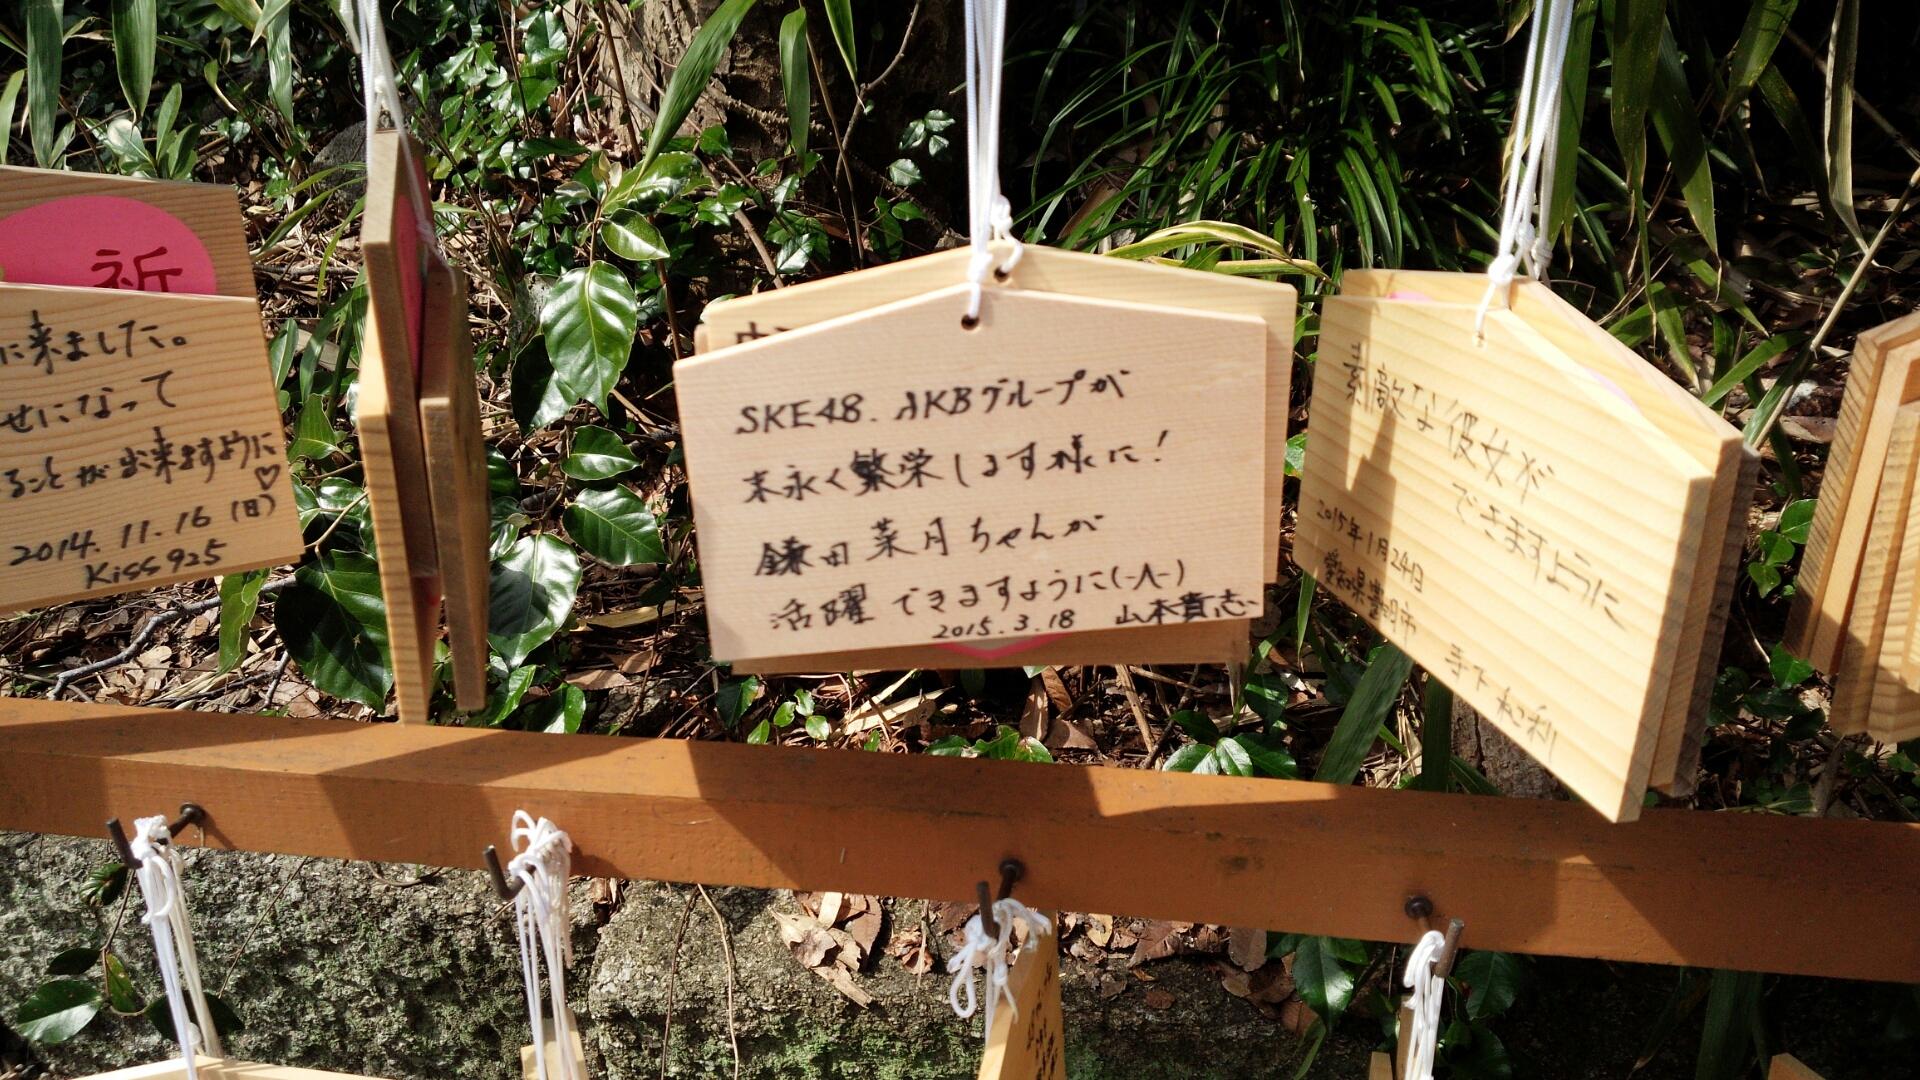 祈
に来ました。
せになって
ることが出来ますように♡
2014.11.16(日)
Kiss925
SKE48.AKBグループが
末永く繁栄します様に!
鎌田菜月ちゃんが
活躍できますように(-人-)
2015.3.18 山本貴志
素敵な彼女が
できますように
2015年1月24日
愛知県豊明市